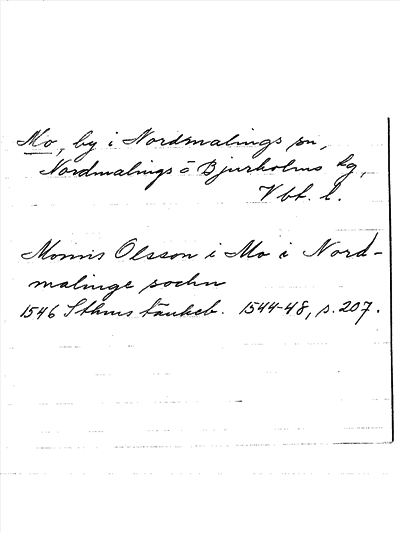 Mo, by i Nordmalings sn,
Nordmalings o Bjurholms tg,
Vbt. l.
Monns Olsson i Mo i Nord-
malinge sochn
1546 Sthms tänkeb. 1544-48, s. 207.